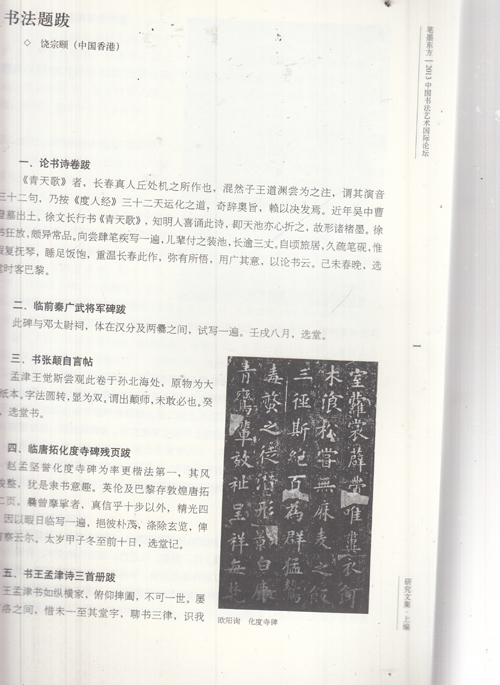 书法题跋
◇ 饶宗颐（中国香港）
一、论书诗卷跋
《青天歌》者，长春真人丘处机之所作也，混然子王道渊尝为之注，谓其演音
三十二句，乃按《度人经》三十二天运化之道，奇辞奥旨，赖以决发焉。近年吴中曹
墓出土。徐文长行书《青天歌》，知明人喜诵此诗，即天池亦心折之，故形诸楮墨。徐
书狂放，颇异常品。向尝肆笔疾写一遍，儿辈付之装池，长逾三丈。自顷旅居，久疏笔砚，惟
复抚琴，睡足饭饱，重温长春此作，弥有所悟，用广其意，以论书云。己未春晚，选
堂时客巴黎。
二、临前秦广武将军碑跋
此碑与邓太尉祠，体在汉分及两爨之间，试写一遍。壬戌八月，选堂。
三、书张颠自言帖
孟津王觉斯尝观此卷于孙北海处，原物为大
纸本。字法圆转，显为双，谓出颠师，未敢必也。癸
，选堂书。
四、临唐拓化度寺碑残页跋
赵孟坚誉化度寺碑为率更楷法第一，其风
整，犹是隶书意趣。英伦及巴黎存敦煌唐拓
二页。曩曾摩挲者，真信乎十步以外，精光四
。因以暇日临写一遍，挹彼朴茂，涤除玄览，俾
察云尔。太岁甲子冬至前十日，选堂记。
五、书王孟津诗三首册跋
王孟津书如纵横家，俯仰捭阖，不可一世。屡
洛之间，惜未一至其堂字，聊书三律，识我
室萝裳薜带唯
木浪松窗无麻麦之饭
三径斯绝百为群猛鸷
毒螫之徒潜形景白鹿
青鸾辈效祉呈祥无
欧阳询 化度寺碑
笔墨东方—2013中国书法艺术国际论坛
研究文集·上编